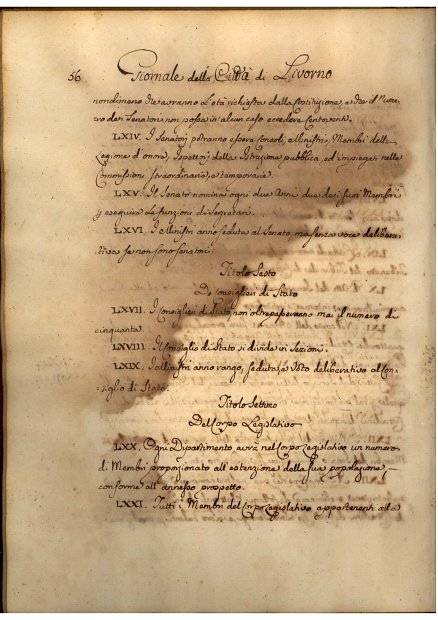 56 Giornale della Città di Livorno
nondimeno che avranno l'età richiesta dalla Costituzione, e che il Nume-
ro dei Senatori non possa in alcun caso eccedere i cento venti.
LXIV. I Senatori potranno essere Consoli, Ministri, Membri della
Legione d'onore, Ispettori della Istruzione pubblica, ed impiegati nelle
Commissioni straordinarie, e temporarie.
LXV. Il Senato nomina ogni due Anni due dei suoi Membri
p eseguire le funzioni di Segretari.
LXVI. I Ministri anno seduta al Senato, ma senza voce delibera-
tiva se non sono Senatori.
Titolo Sesto
De Consiglieri di Stato
LXVII. I Consiglieri di Stato non oltrepaseranno mai il numero di
cinquanta.
LXVIII. Il Consiglio di Stato si divide in Sezioni.
LXIX. I Ministri anno rango, seduta, e Voto deliberativo al Con-
siglio di Stato.
Titolo Settimo
Del Corpo Legislativo
LXX. Ogni Dipartimento avrà nel Corpo Legislativo un numero
di Membri proporzionato all'estenzione della sua popolazione,
conforme all'annesso prospetto.
LXXI. Tutti i Membri del Corpo Legislativo appartenenti alla